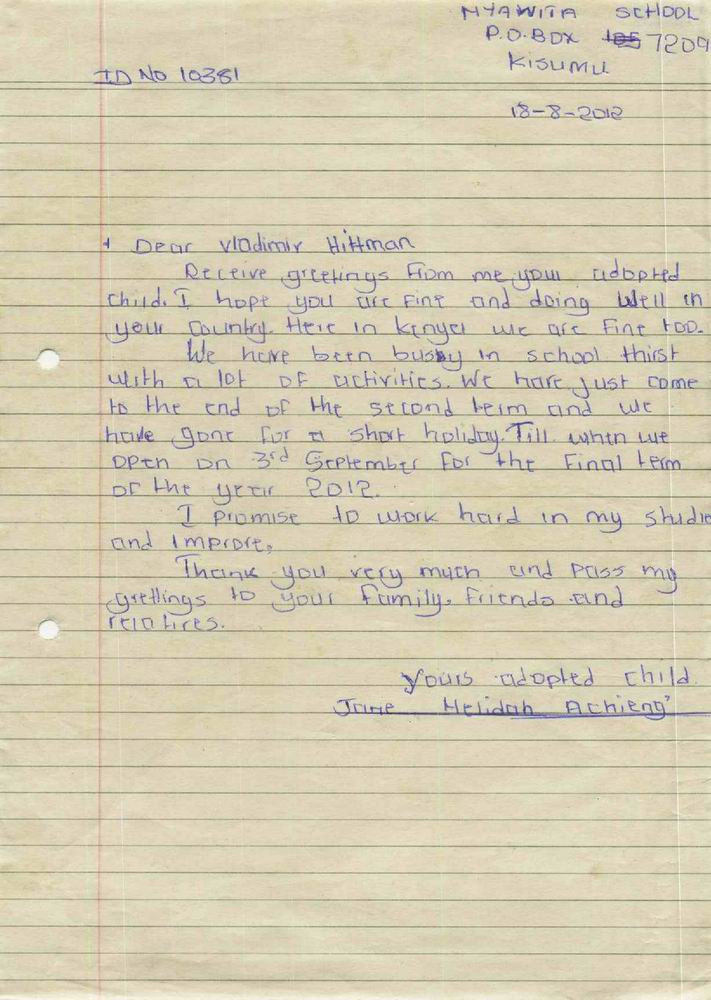 NYAWITA SCHOOL
P.O.BOX 7209
KISUMU
ID NO 10381
18-8-2012
Dear Vladimir Hittman
Receive greetings from me your adopted
child. I hope you are fine and doing well in
your country. Here in Kenya we are fine too.
We have been busy in school thirst
with a lot of activities. We have just come
to the end of the second term and we
have gone for a short holiday. Till when we
open on 3rd September for the final term
of the year 2012.
I promise to work hard in my studie
and improve.
Thank you very much and pass my
greetings to your family, friends and
relatives.
yours adopted child
Jane Helidah Achieng'